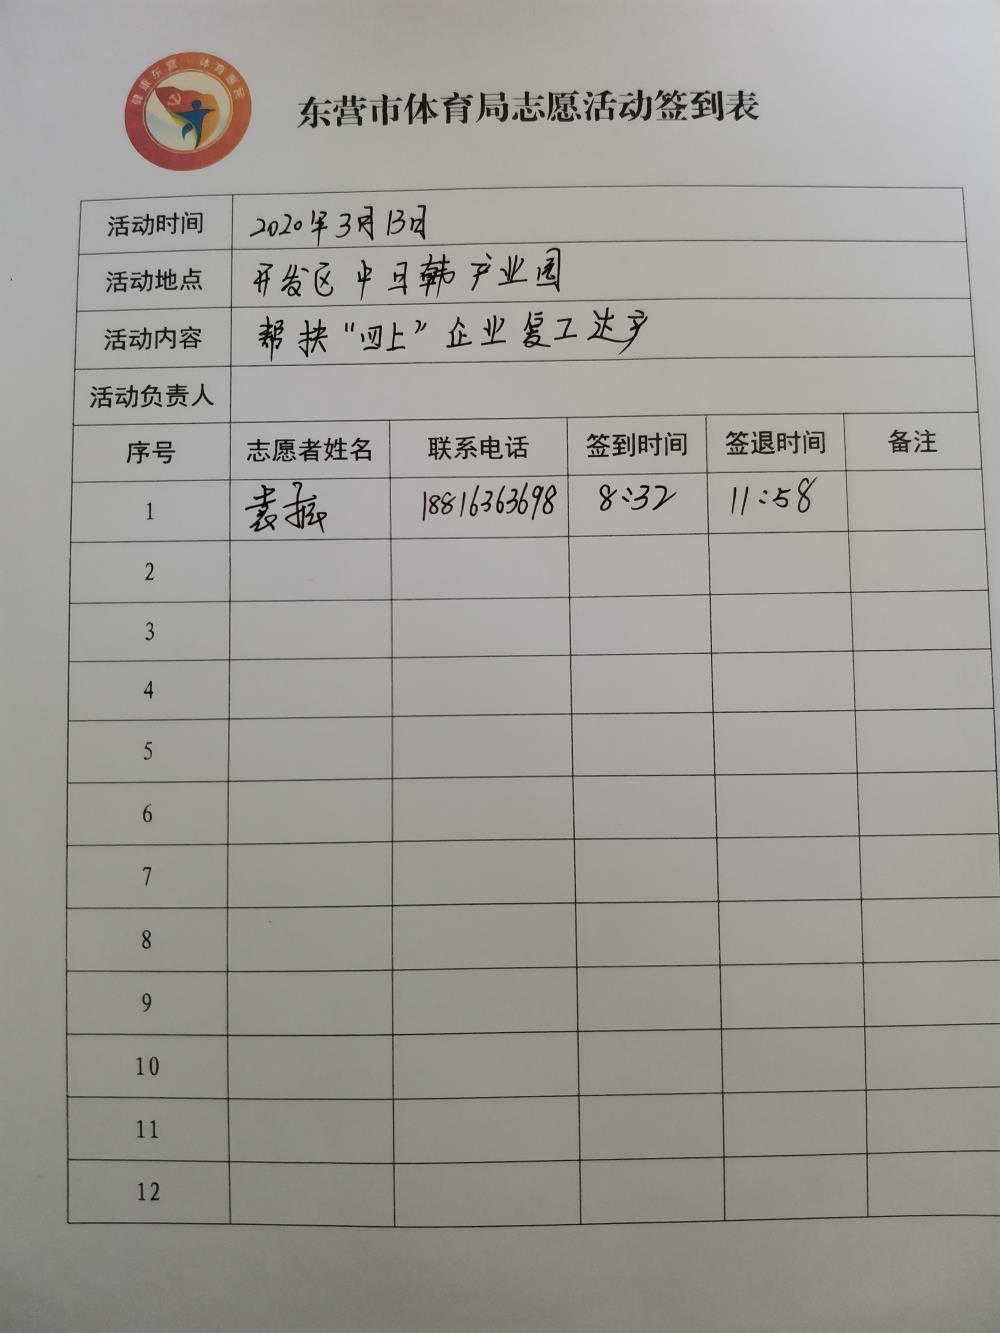 健康东营·体育惠民
东营市体育局志愿活动签到表
活动时间 2020年3月13日
活动地点 开发区中日韩产业园
活动内容 帮扶“四上”企业复工达产
活动负责人
序号 志愿者姓名 联系电话 签到时间 签退时间 备注
1 袁 18816363698 8:32 11:58
2
3
4
5
6
7
8
9
10
11
12